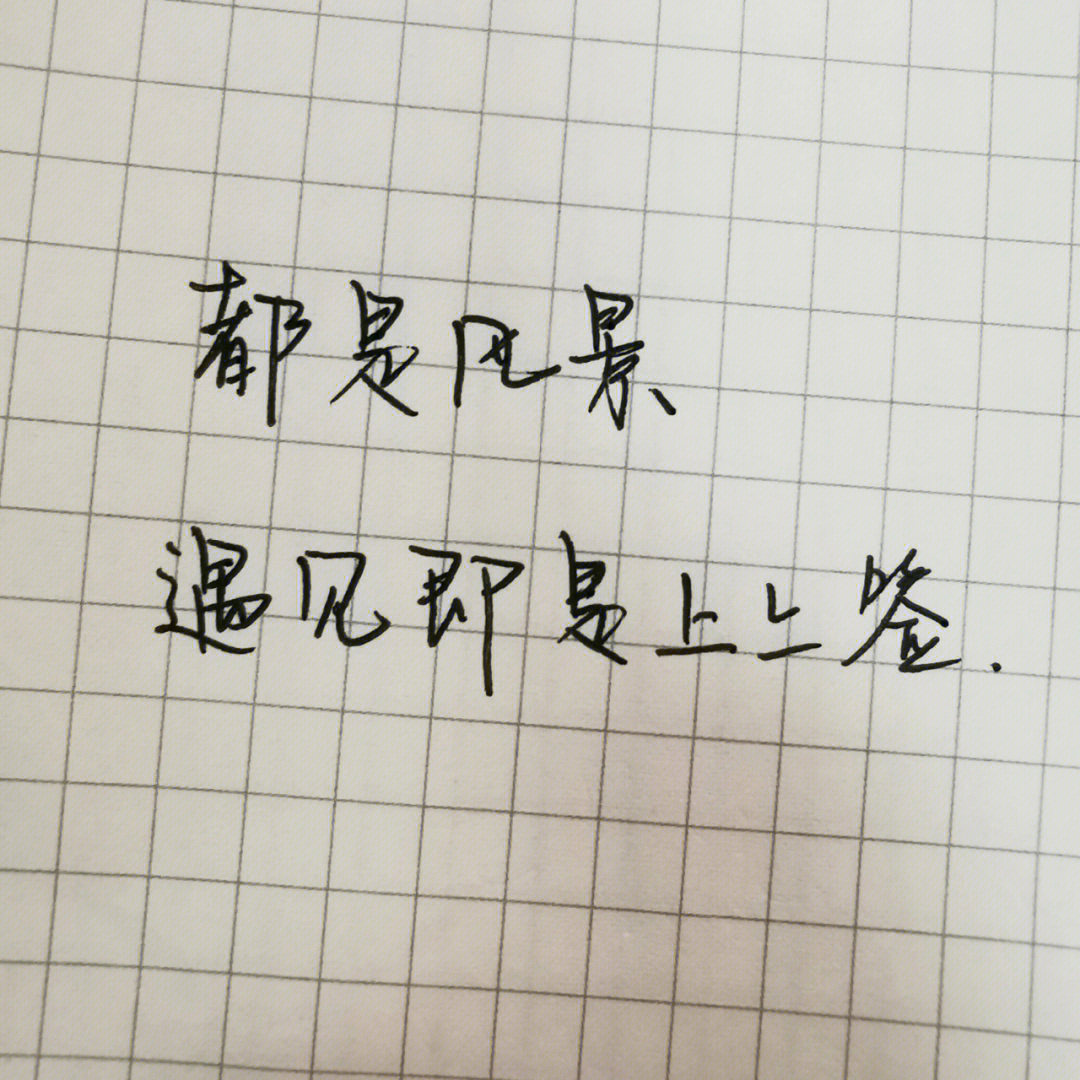 都是风景、
遇见即是上上签.